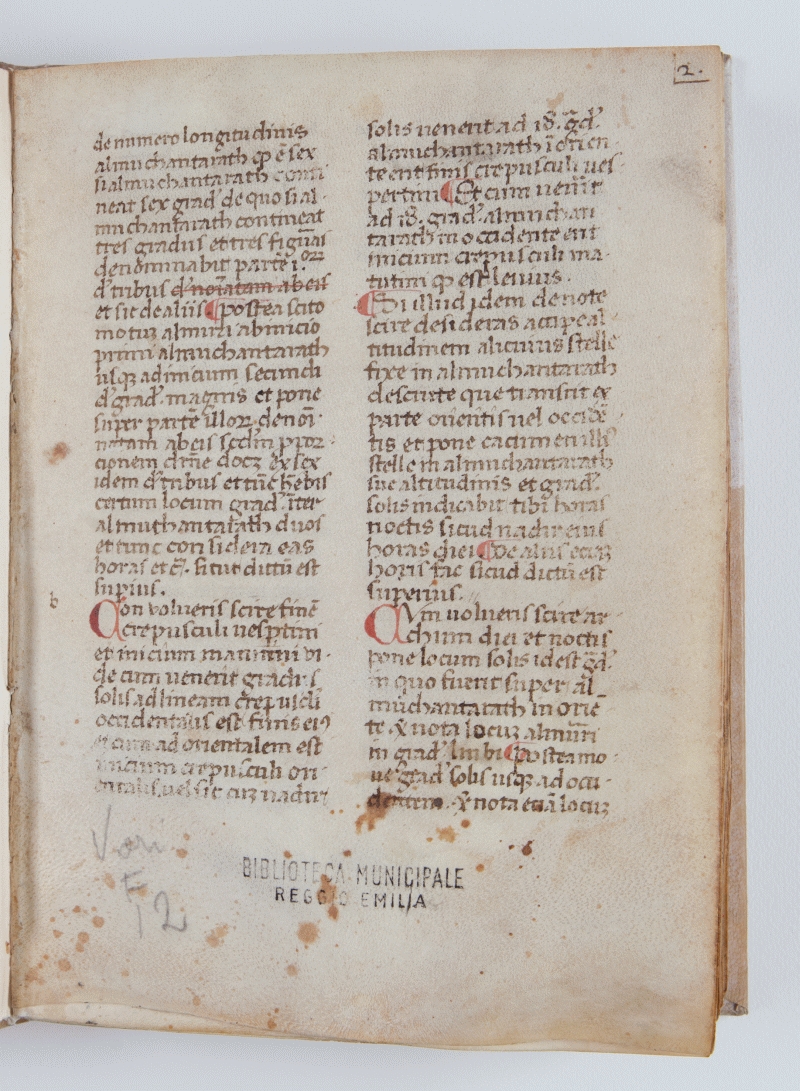 2.
de numero longitudinis
almuchantarath qp ẽ sex
si almuchantarath conti
neat sex grad' de quo si al-
muchantarath contineat
tres gradus et tres figuras
denominabit partẽ i.
d' tribus d' notatam abeis
et sic de aliis postea scito
motuʒ almuri ab inicio
primi almuchantarath
usqʒ ad inicium secundi
d' grad' magnis et pone
super partẽ illoꝝ denoĩ-
natam abeis scd̃m ꝓpoꝝ-
cionem
idem d' tribus et tũc h̃ebis
certum locum grad' ĩter
almuchantarath duos
et tunc considera eas
horas et c̃. sicut dictũ est
superius.
b
Con volueris scire finẽ
crepusculi vesptini
et inicium matutini vi-
de cum venerit gradus
solis ad lineam crepusculi
occidentalis est finis eiꝰ
et cum ad orientalem est
inicium crepusculi ori-
entalis, vel sic cuʒ nadir
solis venerit ad 18. g̃d'
almuchantarath ĩ orien-
te erit finis crepusculi ves-
pertini Et cum venit
ad 18. grad' almuchan
tarath in occidente erit
inicium crepusculi ma-
tutini qp est levius.
Si illud idem de nocte
scire desideras accipe al-
titudinem alicuius stelle
fixe in almuchantarath
descripte que transit ex
parte orientis vel occidẽ-
tis et pone cacumen illiꝰ
stelle in almuchantarath
sue altitudinis et grad'
solis indicabit tibi horas
noctis sicud nadir eius
horas diei De aliis ecuʒ
horis fac sicud dictũ est
superius.
Cum volueris scire ar-
chum diei et noctis
pone locum solis idest g̃d'
in quo fuerit super al_
muchantarath in orie
te & nota locuʒ almuri
in grad' limbi Postea mo-
ve grad' solis usqʒ ad occi-
dentem. & nota etiã locuʒ
Vari
F
12
BIBLIOTECA MUNICIPALE
REGGIO EMILIA